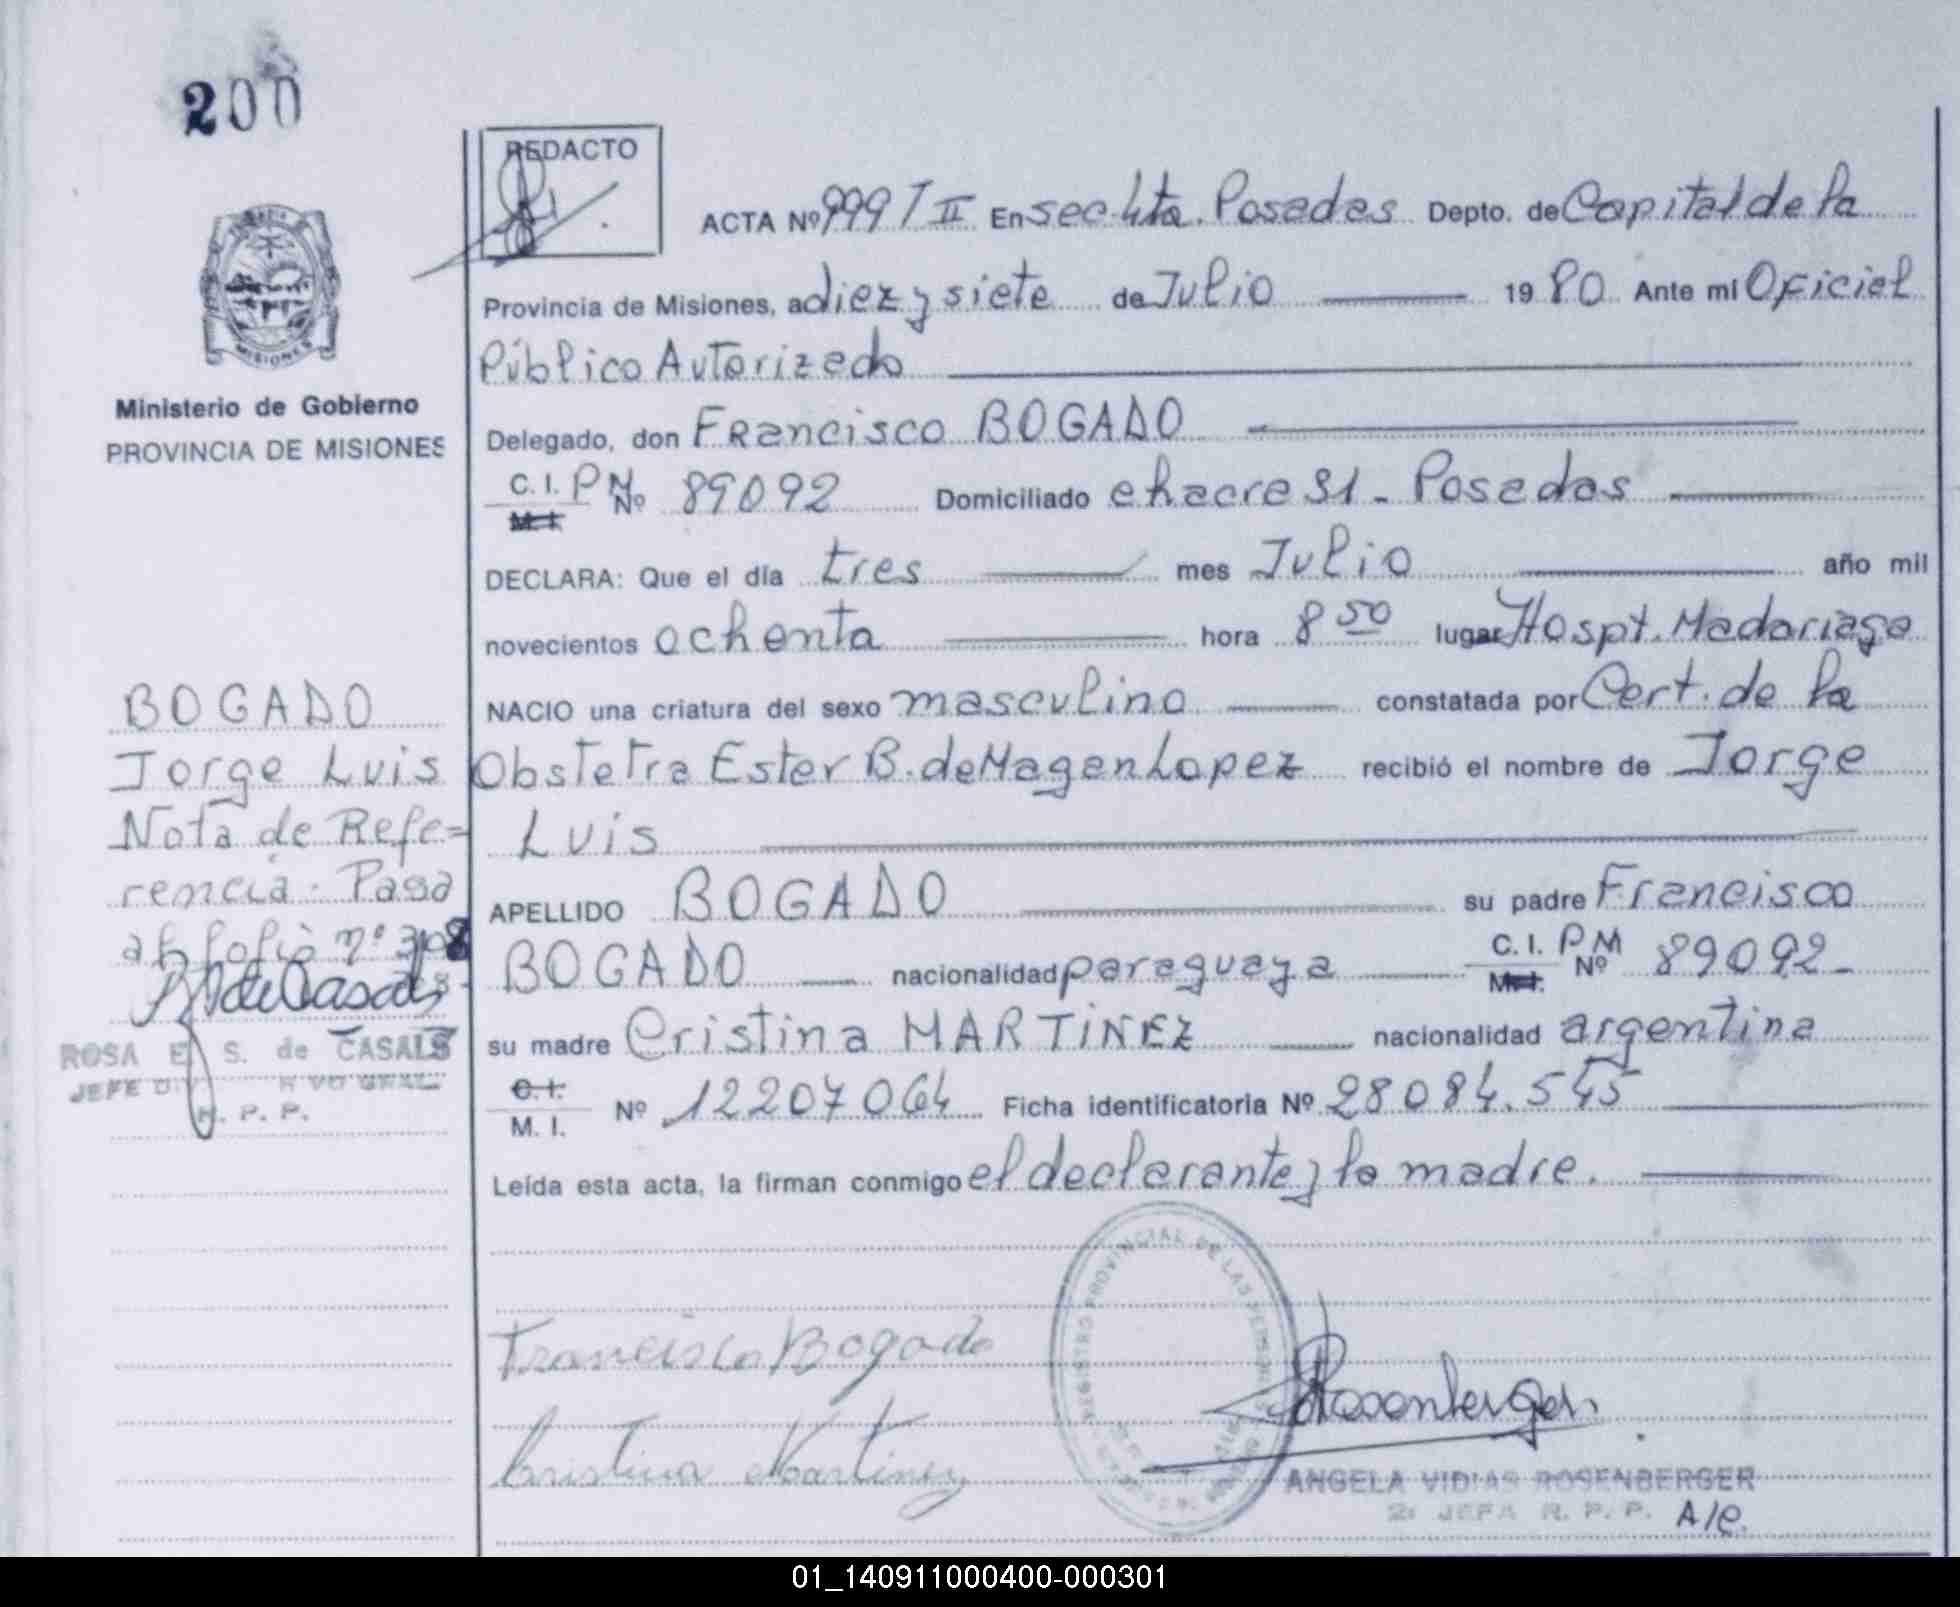 200
REDACTO
ACTA Nº 999 T II En Sec. 4ta. Posadas Depto. de Capital de la
Provincia de Misiones, a diez y siete de Julio 1980 Ante mi Oficial
Público Autorizado
Delegado, don Francisco BOGADO
C. I. P M Nº 89092 Domiciliado chacra 81 - Posadas
M. I.
DECLARA: Que el día tres mes Julio año mil
novecientos ochenta hora 8 50 lugar Hospt. Madariaga
NACIO una criatura del sexo masculino constatada por Cert. de la
Obstetra Ester B. de Magen Lopez recibió el nombre de Jorge
Luis
APELLIDO BOGADO su padre Francisco
BOGADO nacionalidad paraguaya C. I. P M Nº 89092 -
M. I.
su madre Cristina MARTINEZ nacionalidad argentina
C. I.
M. I. Nº 12207064 Ficha identificatoria Nº 28084.545
Leída esta acta, la firman conmigo el declarante y la madre.
Francisco Bogado
Cristina Martinez
REGISTRO PROVINCIAL DE LAS PERSONAS
Rosenberger
ANGELA VIDIAS ROSENBERGER
2ª JEFA R. P. P. A/C.
MISIONES
Ministerio de Gobierno
PROVINCIA DE MISIONES
BOGADO
Jorge Luis
Nota de Refe=
rencia: Pasa
al folio nº 308
de Casals
ROSA E. S. de CASALS
JEFE DIV. GRAL.
R. P. P.
01_140911000400-000301